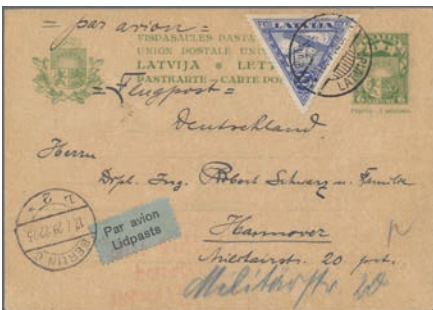 = par avion =
VISPASAULES PASTA
UNION POSTALE UNI
LATVIJA * LETT
PASTKARTE - CARTE POS
= Flugpost =
LATVIJA
LATVIJA
6
Deutschland.
Herrn
Dipl. Ing. Robert Schwarz u. Familie
Hannover
20 ptr.
Militärstr 20
Par avion
Lidpasts
BERLIN C
2